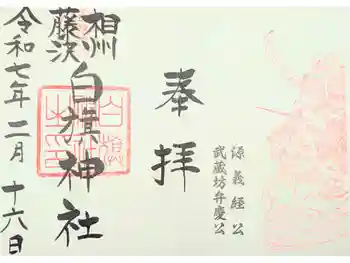 奉拝
源義経公
武蔵坊弁慶公
相州
藤沢
白旗神社
令和七年二月十六日